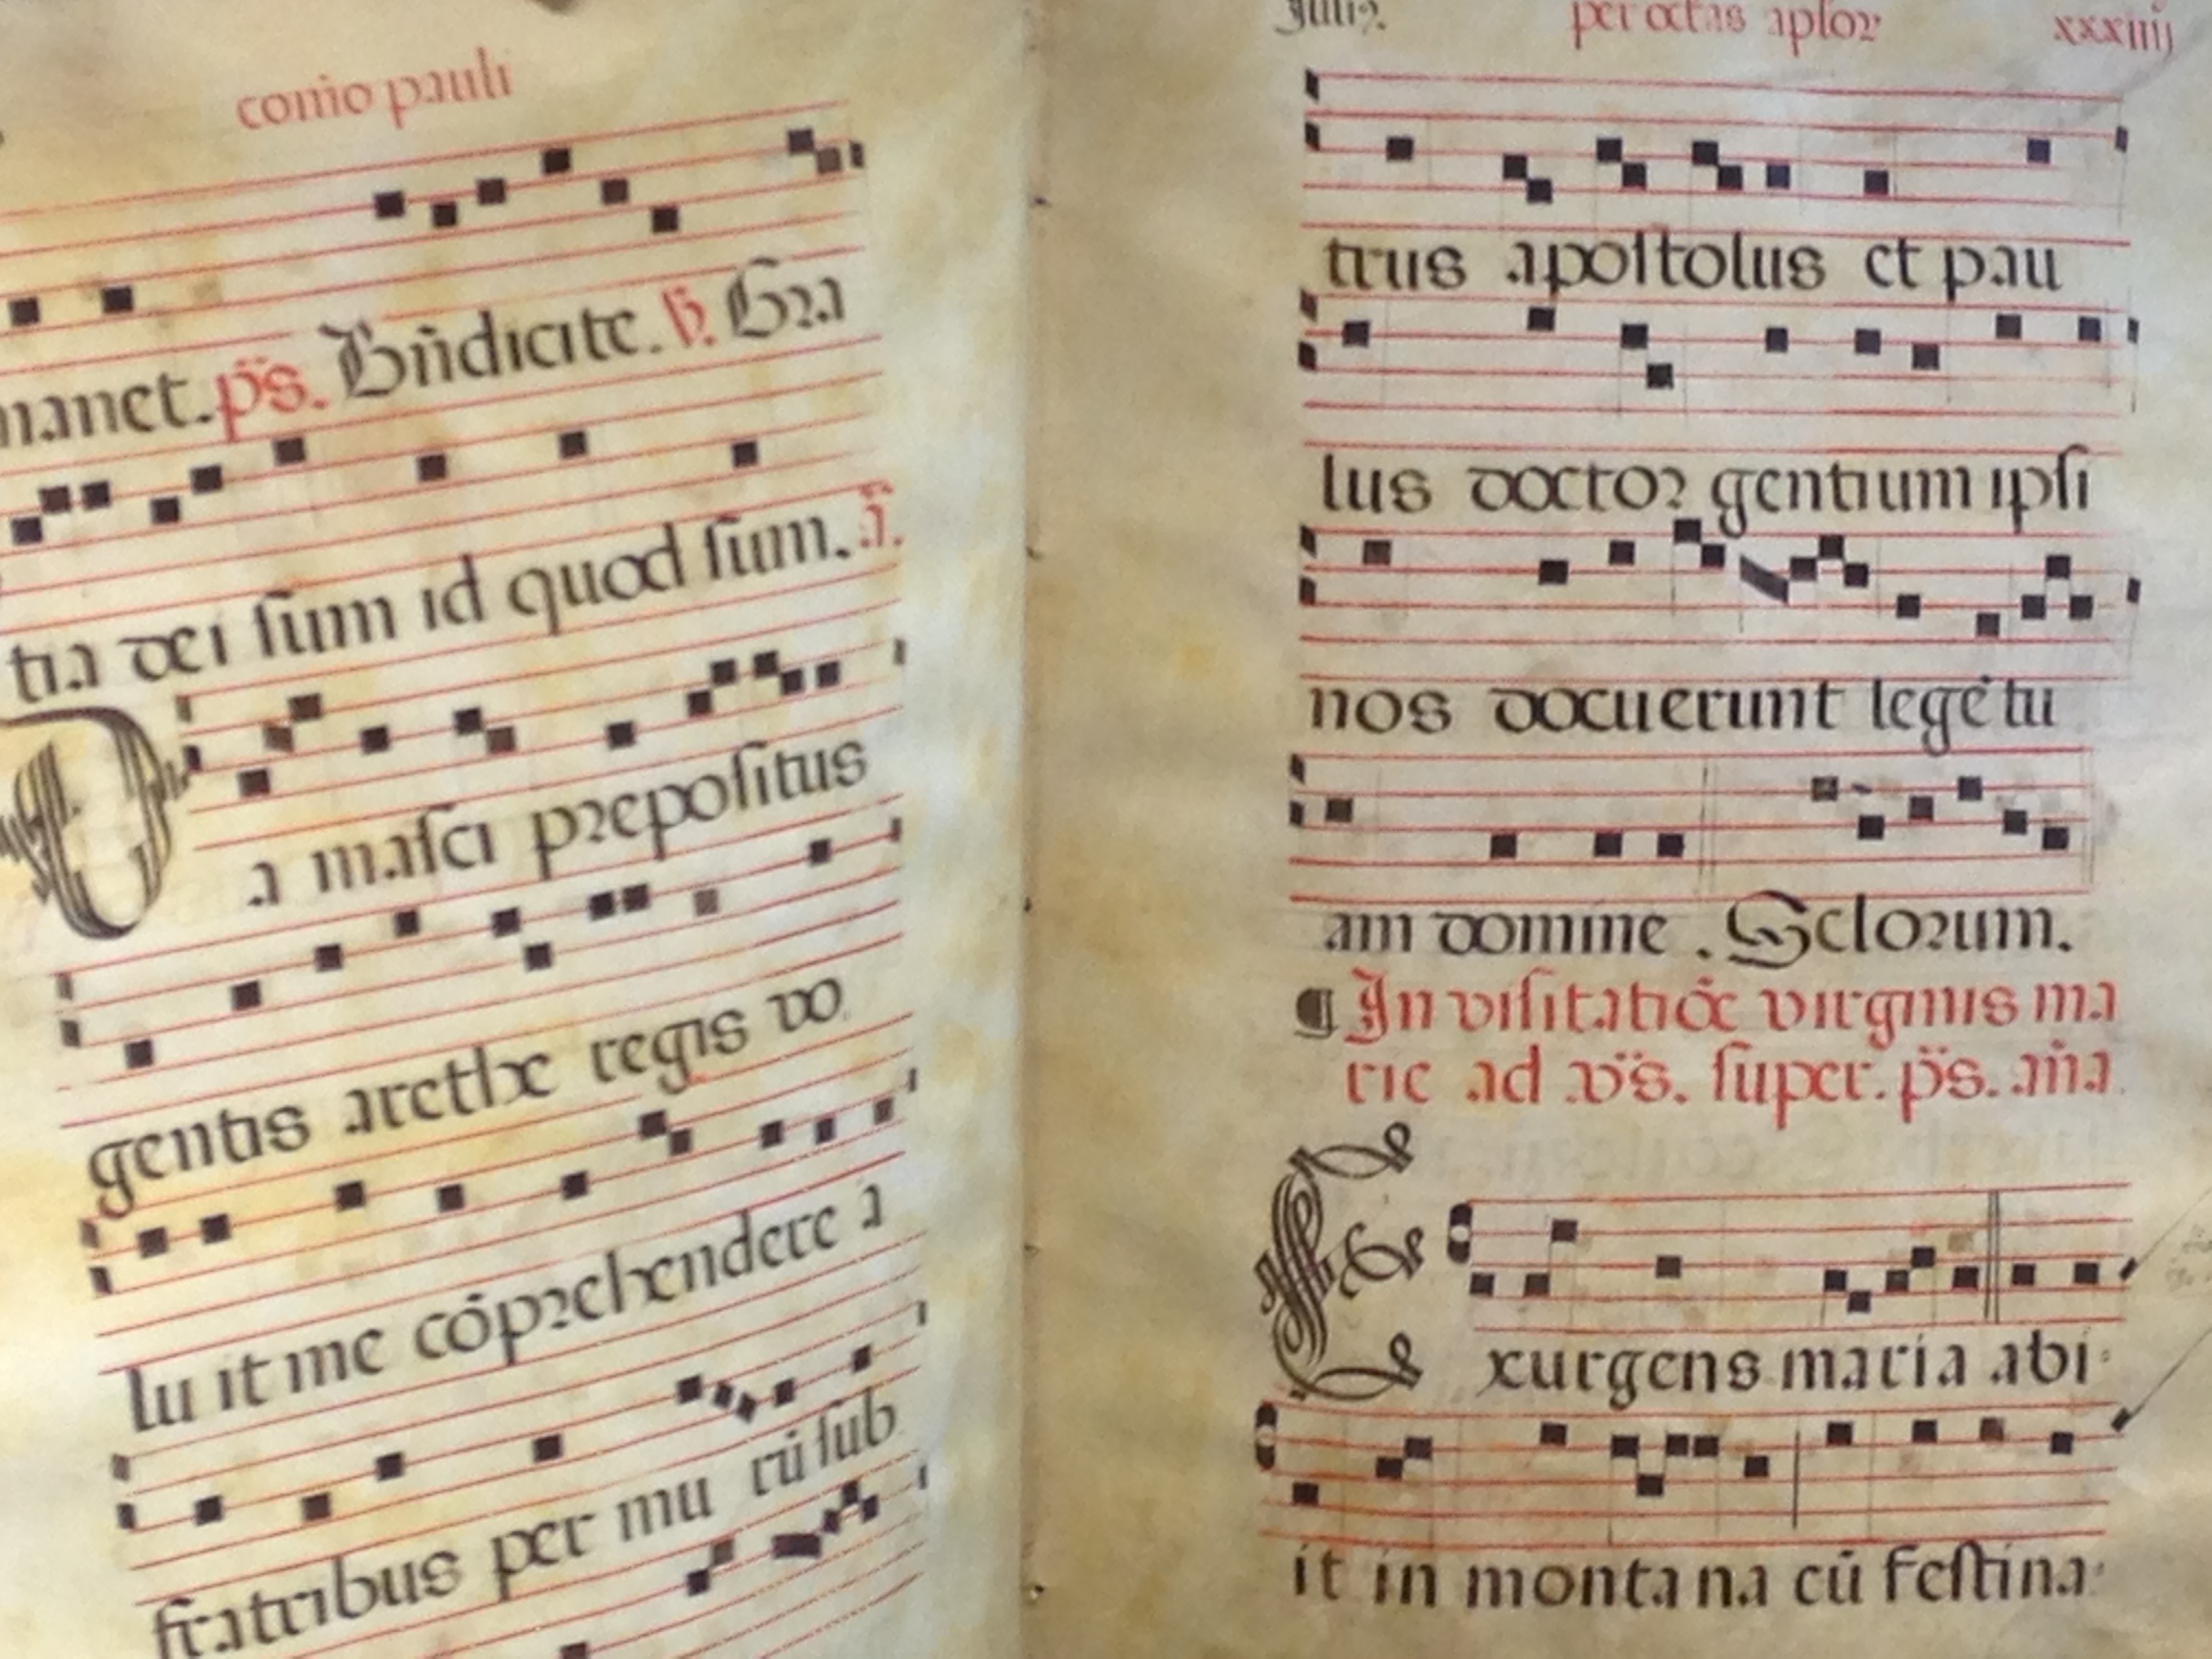 conu̅o pauli
manet. ps. Bn̄dicite. h̄. Gra
tia dei sum id quod sum. a̅.
D
a masci prepositus
gentis arethe regis vo
lu it me co̅prehendere a
fratribus per mu ru̅ sub
Julij. per octas aplor xxxiiij
trus apostolus et pau
lus doctor gentium ipsi
nos docuerunt lege̅ tu
am domine. Seclorum.
¶ In visitatio̅e virginis ma
rie ad vs̄. super. ps̄. an̄a
E
xurgens maria abi
it in monta na cu̅ festina